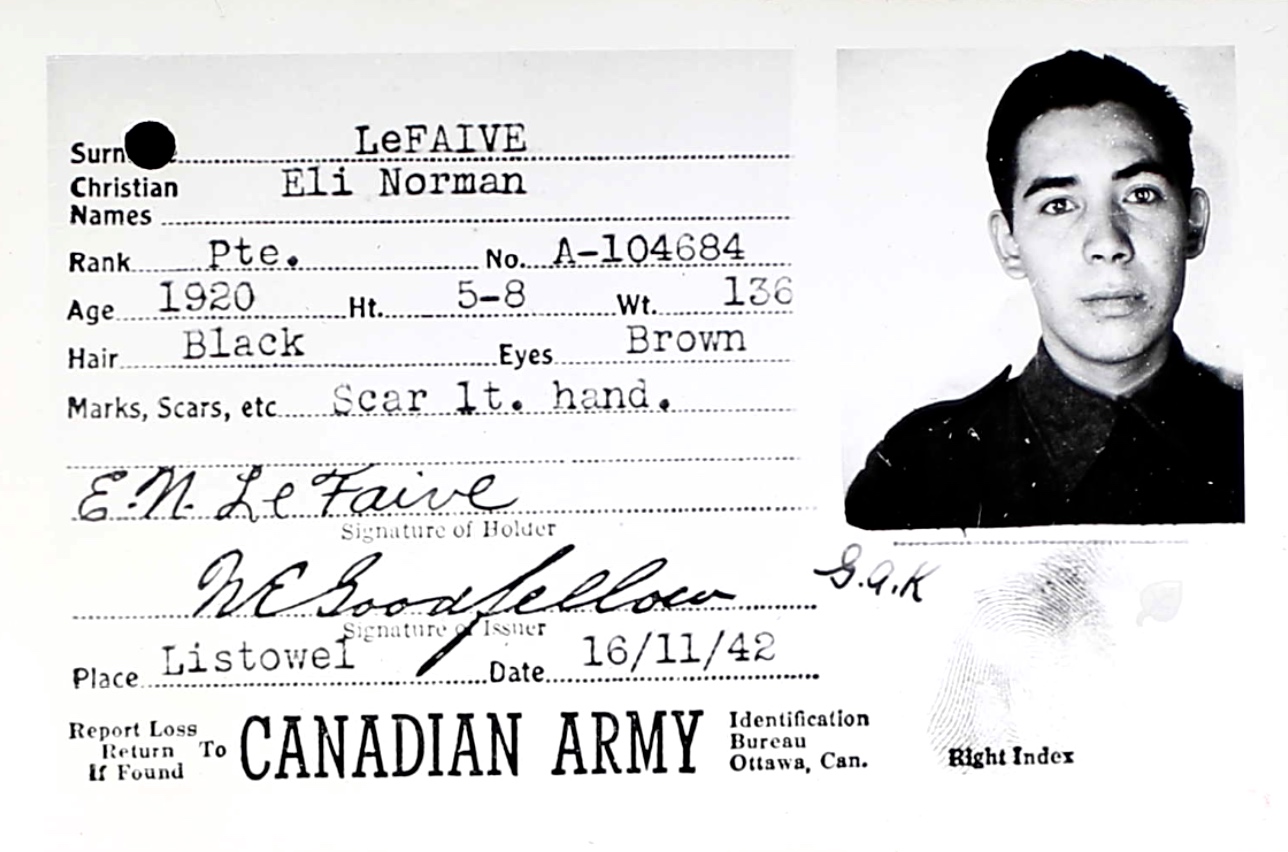 Surn LeFAIVE
Christian Eli Norman
Names
Rank Pte. No. A-104684
Age 1920 Ht. 5-8 Wt. 136
Hair Black Eyes Brown
Marks, Scars, etc Scar lt. hand.
E.N. LeFaive
Signature of Holder
WE Goodfellow
G.A.K
Signature of Issuer
Place Listowel Date 16/11/42
Report Loss
Return To
If Found
CANADIAN ARMY
Identification
Bureau
Ottawa, Can.
Right Index